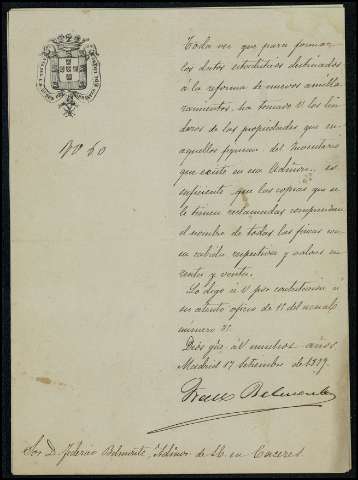 Nº 50
Toda vez que para formar
los datos estadísticos destinados
á la reforma de nuevos amilla
ramientos, ha tomado V. los lin
deros de las propiedades que en
aquellos figuran del
que existe en esa Admon. es
suficiente que las copias que se
le tienen reclamadas comprendan
el nombre de todas las fincas con
su cabida respectiva y valores en
renta y venta.
Lo digo á V. por contestacion á
su atento oficio de 11 del actual
número 71.
Dios gde. á V. muchos años
Madrid 17 Setiembre de 1879.
Belmonte
Sor. D. Federico Belmonte, Admor. de en Caceres.